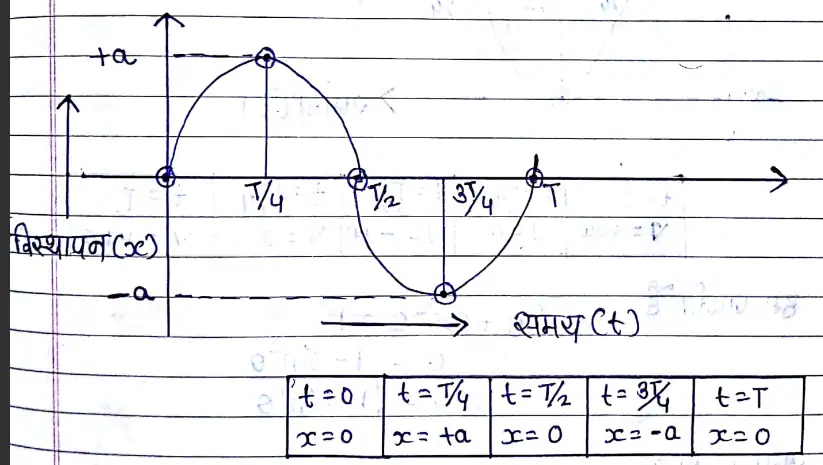 +a
T/4 T/2 3T/4 T
विस्थापन (x)
-a
समय (t)
t=0 t=T/4 t=T/2 t=3T/4 t=T
x=0 x=+a x=0 x=-a x=0